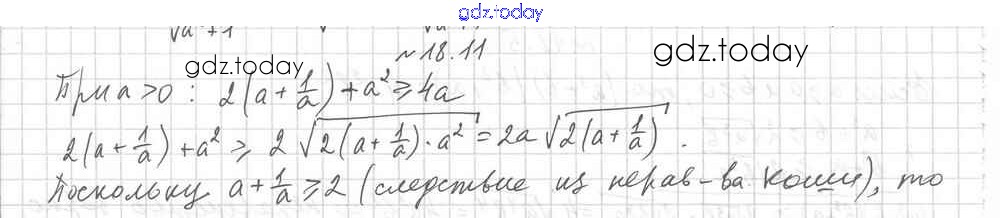 gdz.today
√a²+1
№18.11
gdz.today
gdz.today
При a>0: 2(a+1/a)+a²≥4a
2(a+1/a)+a² ≥ 2√(2(a+1/a)·a²) = 2a√(2(a+1/a)).
Поскольку a+1/a ≥2 (следствие из нерав-ва Коши), то